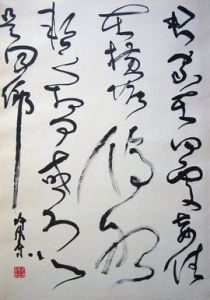 君家定何處妾住
在橫塘停船
暫借問或恐
是同鄉